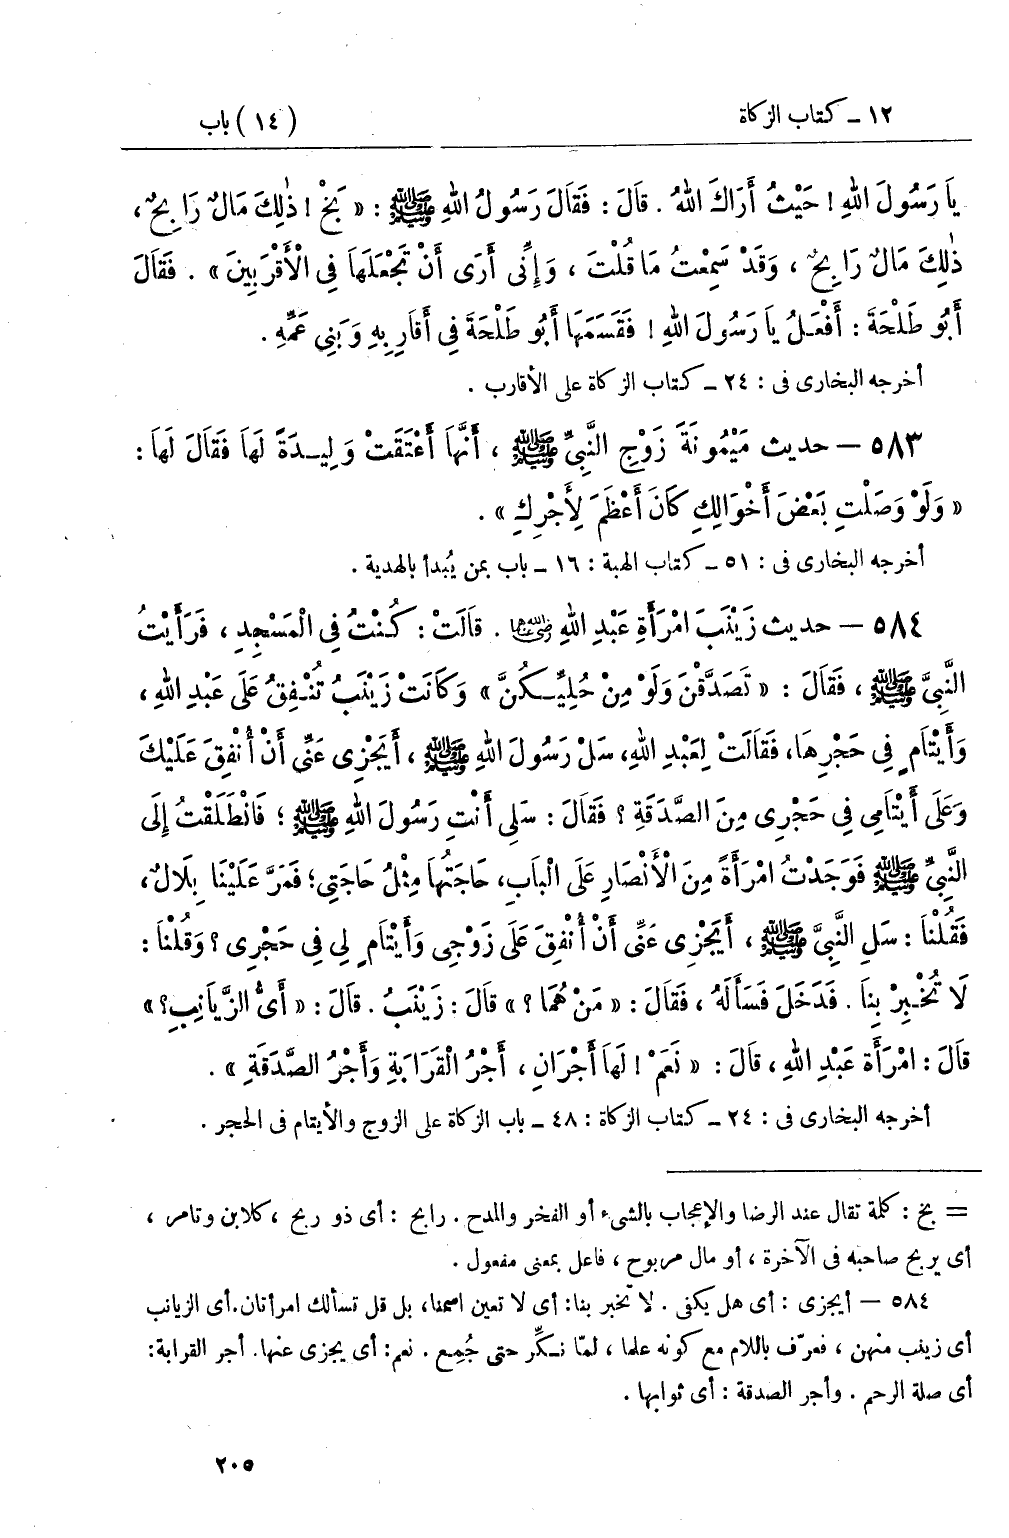 ١٢ ــ كتاب الزكاة
( ١٤ ) باب
يَا رَسُولَ اللهِ ! حَيْثُ أَرَاكَ اللهُ . قَالَ : فَقَالَ رَسُولُ اللهِ ﷺ : « بَخْ ! ذٰلِكَ مَالٌ رَابِحٌ ،
ذٰلِكَ مَالٌ رَابِحٌ ، وَقَدْ سَمِعْتُ مَا قُلْتَ ، وَإِنِّى أَرَى أَنْ تَجْعَلَهَا فِى الْأَقْرَبِينَ » . فَقَالَ
أَبُو طَلْحَةَ : أَفْعَلُ يَا رَسُولَ اللهِ ! فَقَسَمَهَا أَبُو طَلْحَةَ فِى أَقَارِبِهِ وَبَنِى عَمِّهِ .
أخرجه البخارى فى : ٢٤ ــ كتاب الزكاة على الأقارب .
٥٨٣ — حديث مَيْمُونَةَ زَوْجِ النَّبِىِّ ﷺ ، أَنَّهَا أَعْتَقَتْ وَلِيدَةً لَهَا فَقَالَ لَهَا :
« وَلَوْ وَصَلْتِ بَعْضَ أَخْوَالِكِ كَانَ أَعْظَمَ لِأَجْرِكِ » .
أخرجه البخارى فى : ٥١ ــ كتاب الهبة : ١٦ ــ باب بمن يُبدأ بالهدية .
٥٨٤ — حديث زَيْنَبَ امْرَأَةِ عَبْدِ اللهِ رضي الله عنهما . قَالَتْ : كُنْتُ فِى الْمَسْجِدِ ، فَرَأَيْتُ
النَّبِىَّ ﷺ ، فَقَالَ : « تَصَدَّقْنَ وَلَوْ مِنْ حُلِيِّكُنَّ » وَكَانَتْ زَيْنَبُ تُنْفِقُ عَلَى عَبْدِ اللهِ ،
وَأَيْتَامٍ فِى حَجْرِهَا، فَقَالَتْ لِعَبْدِ اللهِ، سَلْ رَسُولَ اللهِ ﷺ ، أَيَجْزِى عَنِّى أَنْ أُنْفِقَ عَلَيْكَ
وَعَلَى أَيْتَامِى فِى حَجْرِى مِنَ الصَّدَقَةِ ؟ فَقَالَ : سَلِى أَنْتِ رَسُولَ اللهِ ﷺ ؛ فَانْطَلَقْتُ إِلَى
النَّبِىِّ ﷺ فَوَجَدْتُ امْرَأَةً مِنَ الْأَنْصَارِ عَلَى الْبَابِ، حَاجَتُهَا مِثْلُ حَاجَتِى؛ فَمَرَّ عَلَيْنَا بِلَالٌ،
فَقُلْنَا : سَلِ النَّبِىَّ ﷺ ، أَيَجْزِى عَنِّى أَنْ أُنْفِقَ عَلَى زَوْجِى وَأَيْتَامٍ لِى فِى حَجْرِى ؟ وَقُلْنَا :
لَا تُخْبِرْ بِنَا . فَدَخَلَ فَسَأَلَهُ ، فَقَالَ : « مَنْ هُمَا ؟ » قَالَ : زَيْنَبُ . قَالَ : « أَىُّ الزَّيَانِبِ؟ »
قَالَ : امْرَأَة عَبْدِ اللهِ ، قَالَ : « نَعَمْ ! لَهَا أَجْرَانِ ، أَجْرُ الْقَرَابَةِ وَأَجْرُ الصَّدَقَةِ » .
أخرجه البخارى فى : ٢٤ ــ كتاب الزكاة : ٤٨ ــ باب الزكاة على الزوج والأيتام فى الحجر .
= بخ : كلمة تقال عند الرضا والإعجاب بالشىء أو الفخر والمدح . رابح : أى ذو ربح ، كلابن وتامر ،
أى يربح صاحبه فى الآخرة ، أو مال مربوح ، فاعل بمعنى مفعول .
٥٨٤ — أيجزى : أى هل يكفى . لا تخبر بنا: أى لا تعين اسمنا، بل قل تسألك امرأتان. أى الزيانب
أى زينب منهن ، فعرّف باللام مع كونه علما ، لمّا نكِّر حتى جُمِع . نعم: أى يجزى عنها. أجر القرابة:
أى صلة الرحم . وأجر الصدقة : أى ثوابها .
٢٠٥